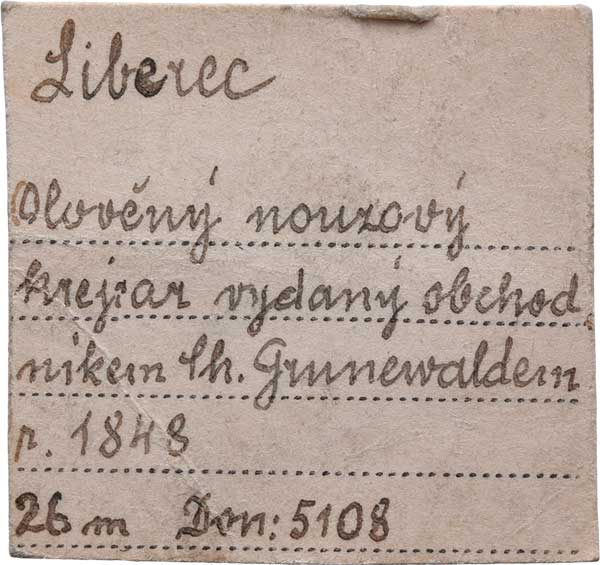 Liberec
Olověný nouzový
krejcar vydaný obchod
níkem Th. Grunewaldem
r. 1848
26 m Don: 5108